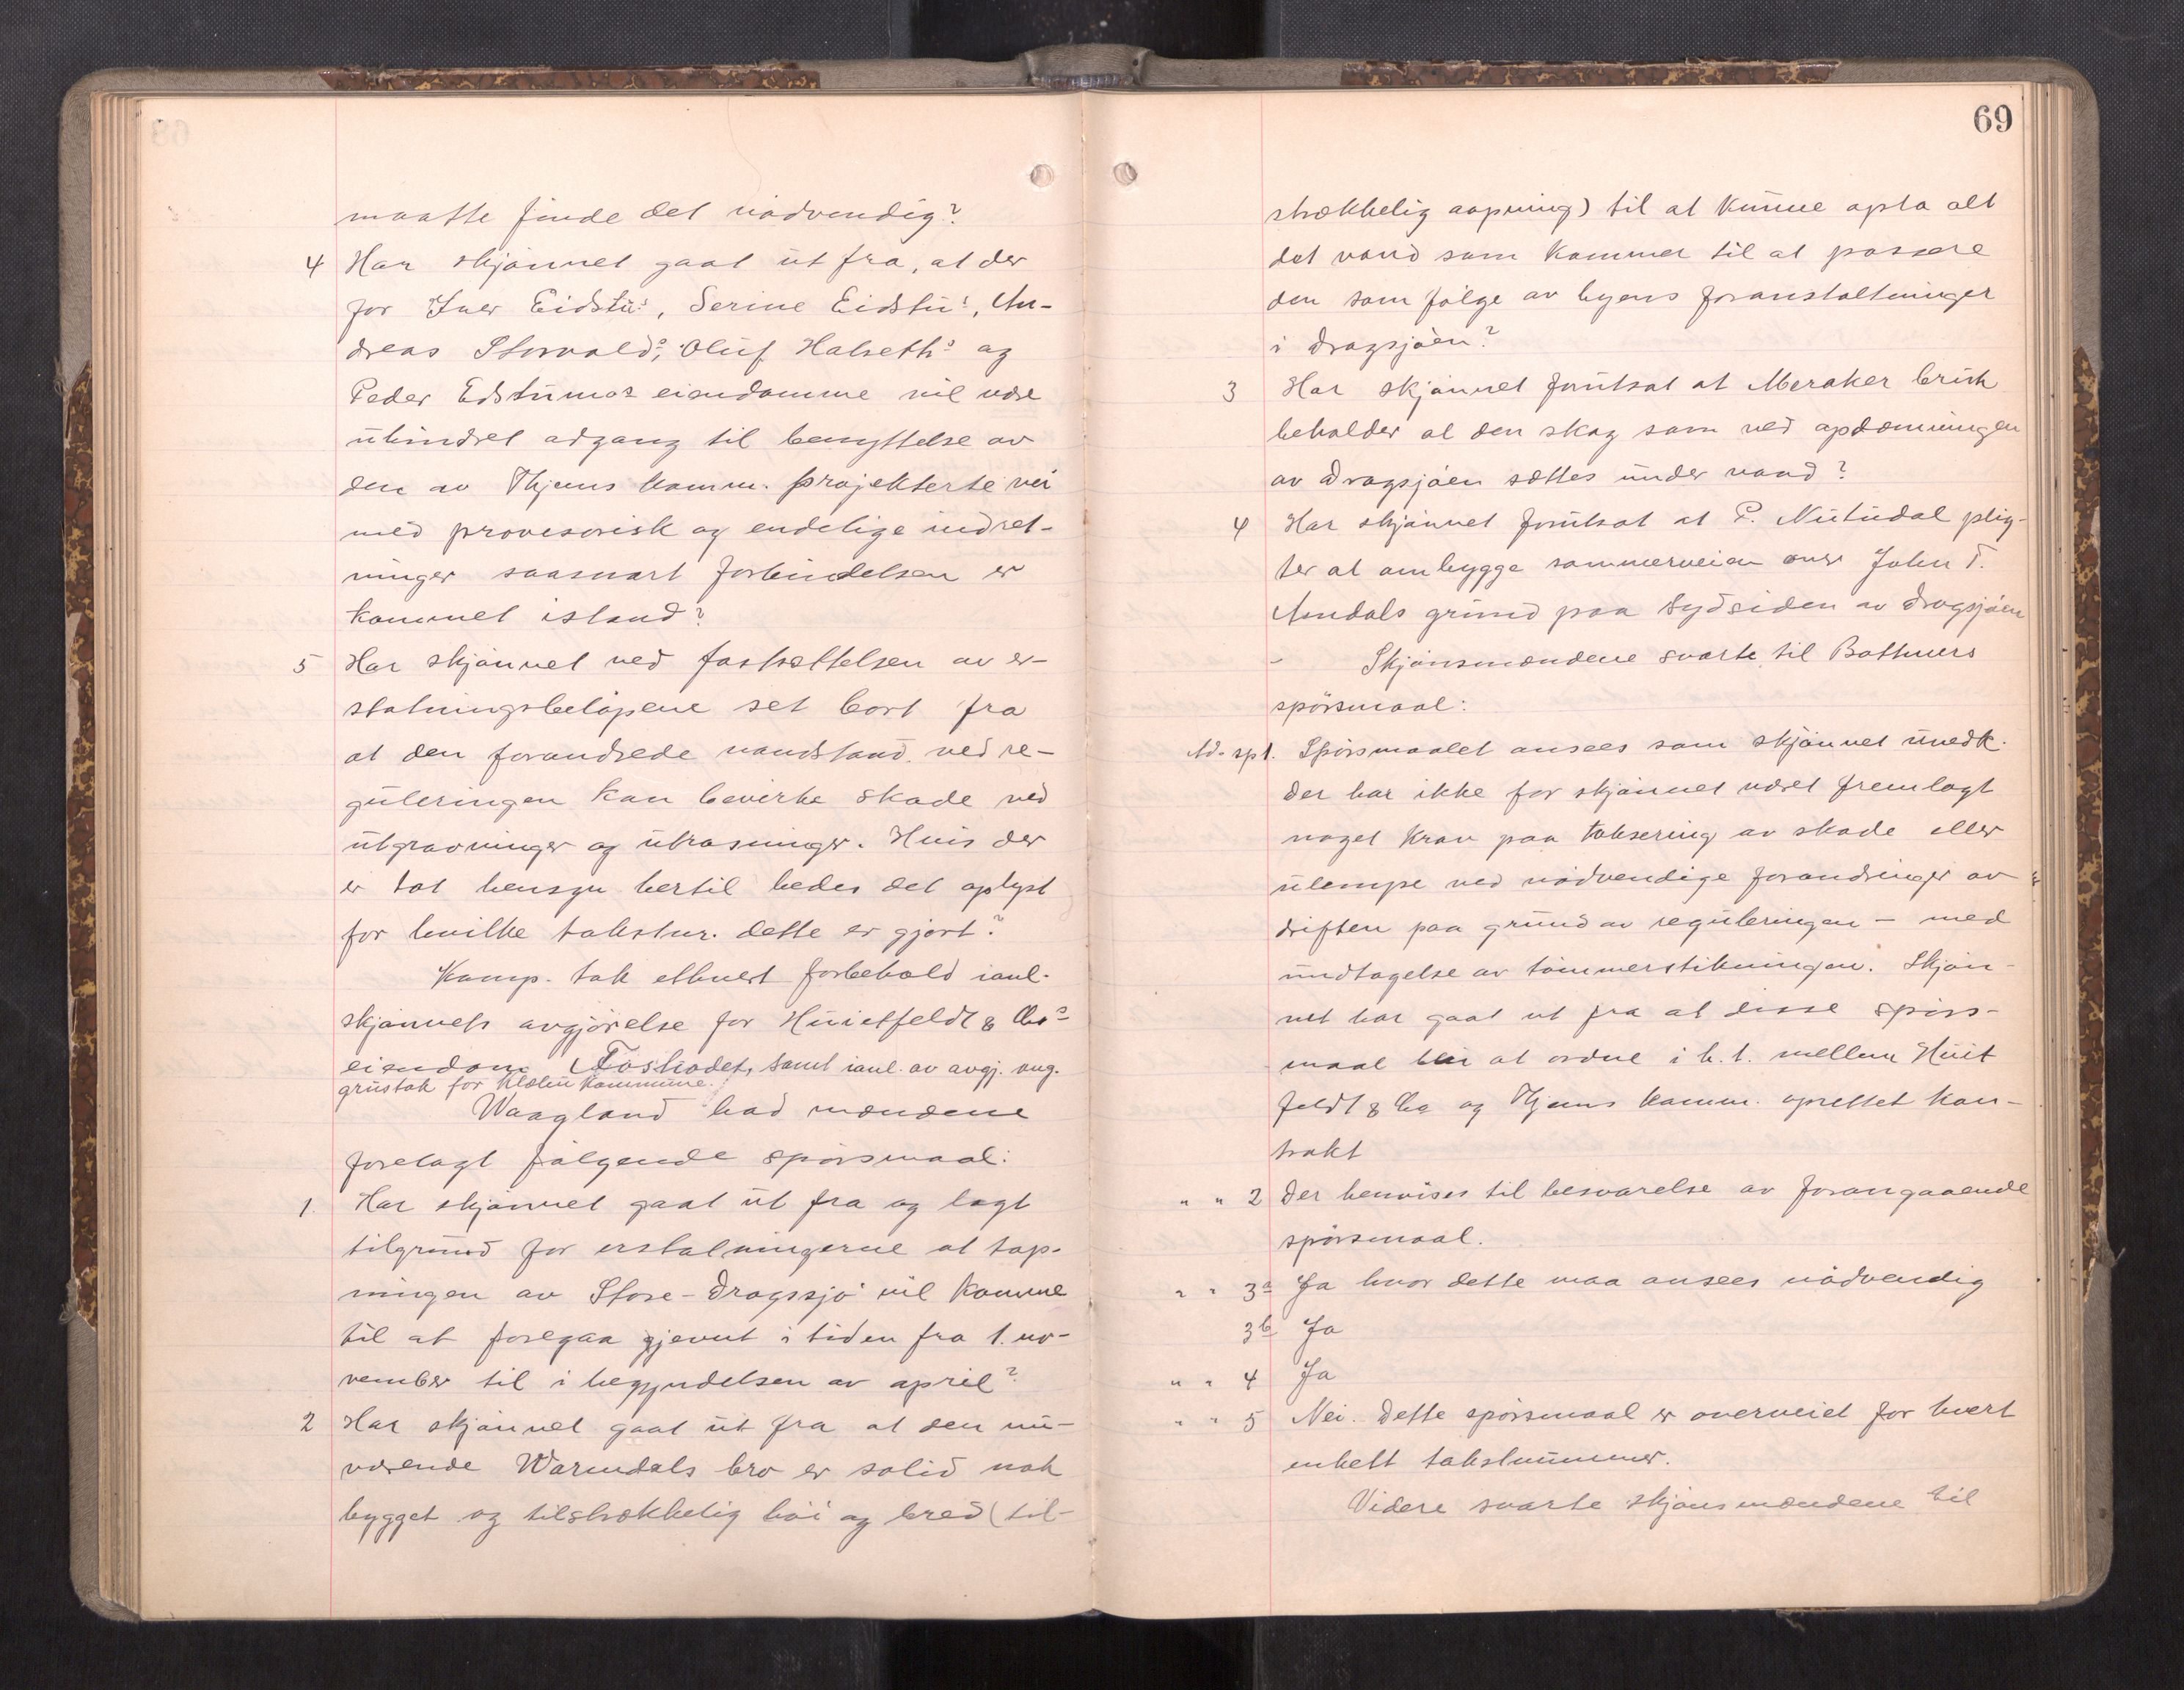 maatte finde det nödvendig?
4 Har skjönnet gaat ut fra, at der
for Iver Eidstu's, Serine Eidstu's, An-
dreas Storvold's, Oluf Halseth's og
Peder Edstumos eiendomme vil være
uhindret adgang til benyttelse av
den av Thjems komm. projekterte vei
med provesorisk og endelige indret-
ninger saasnart forbindelsen er
kommet istand?
5 Har skjönnet ved fastsættelsen av er-
statningsbelöpene set bort fra
at den forandrede vandstand ved re-
guleringen kan bevirke skade ved
utgravninger og utrasninger. Hvis der
er tat hensyn hertil bedes det oplyst
for hvilke takstnr. dette er gjort?
Komp. tok ethvert forbehold ianl.
skjönnets avgjörelse for Huitfeldt & Co's
eiendom Fosströdet, samt ianl. av avgj. ang.
grustak for Klæbu kommune.
Waagland bad mændene
forelagt følgende spörsmaal:
1. Har skjönnet gaat ut fra og lagt
tilgrund for erstatningerne at tap-
ningen av Store-Dragssjö vil komme
til at foregaa jevnt i tiden fra 1. no-
vember til i begyndelsen av april?
2 Har skjönnet gaat ut fra at den nu-
værende Warmdals bro er solid nok
bygget og tilstrækkelig höi og bred (til-
69
strækkelig aapning) til at kunne opta alt
det vand som kommer til at passere
den som fölge av byens foranstaltninger
i Dragsjöen?
3 Har skjönnet forutsat at Meraker bruk
beholder al den skog som ved opdæmningen
av Dragsjöen sættes under vand?
4 Har skjönnet forutsat at P. Nutudal plig-
ter at ombygge sommerveien over John T.
Amdals grund paa sydsiden av Dragsjöen
- Skjönsmændene svarte til Bothners
spörsmaal:
Ad. sp 1. Spörsmaalet ansees som skjönnet uvedk.
Der har ikke for skjönnet været fremlagt
noget krav paa taksering av skade eller
ulempe ved nödvendige forandringer av
driften paa grund av reguleringen - med
undtagelse av tömmerstikningen. Skjön-
net har gaat ut fra at disse spörs-
maal blir at ordne i h. t. mellem Huit
feldt & Co og Thjems komm. oprettet kon-
trakt
" " 2 Der henvises til besvarelse av forangaaende
spörsmaal.
" " 3a Ja hvor dette maa ansees nödvendig
3b Ja
" " 4 Ja
" " 5 Nei. Dette spörsmaal er overveiet for hvert
enkelt takstnummer.
Videre svarte skjönsmændene til